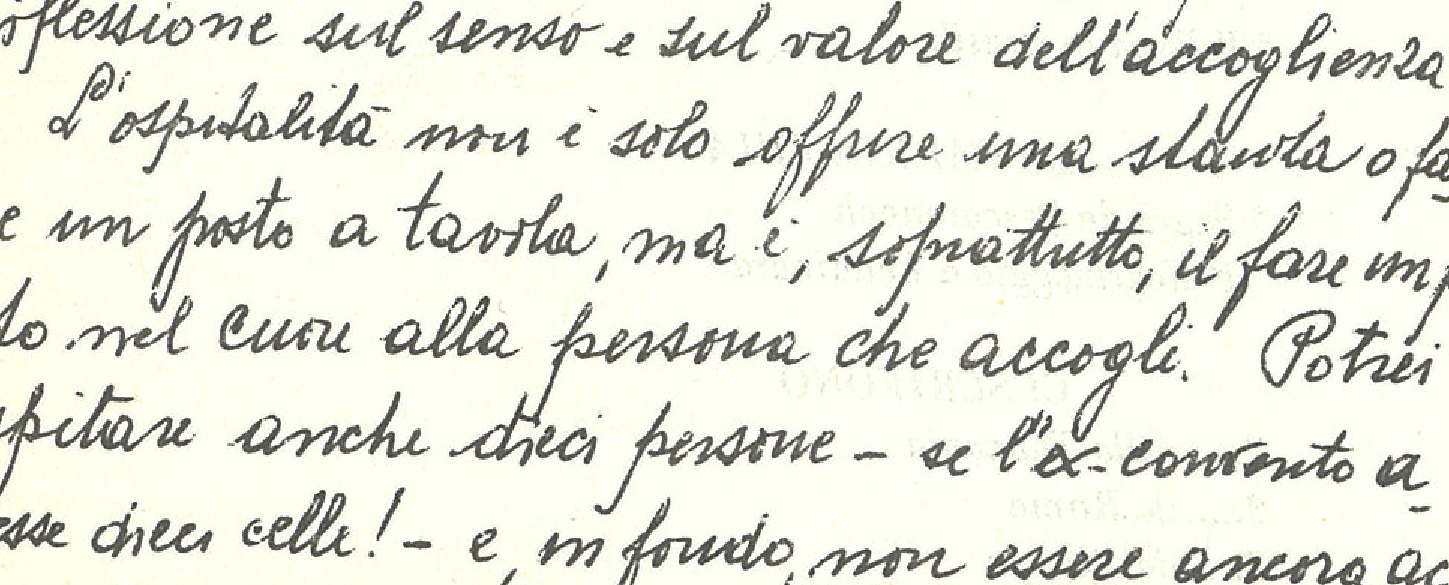 riflessione sul senso e sul valore dell'accoglienza
L'ospitalità non è solo offrire una stanza o fa-
e un posto a tavola, ma è, soprattutto, il fare un p
to nel cuore alla persona che accogli. Potrei
spitare anche dieci persone - se l'"ex-convento a-
esse dieci celle! - e, in fondo, non essere ancora ac